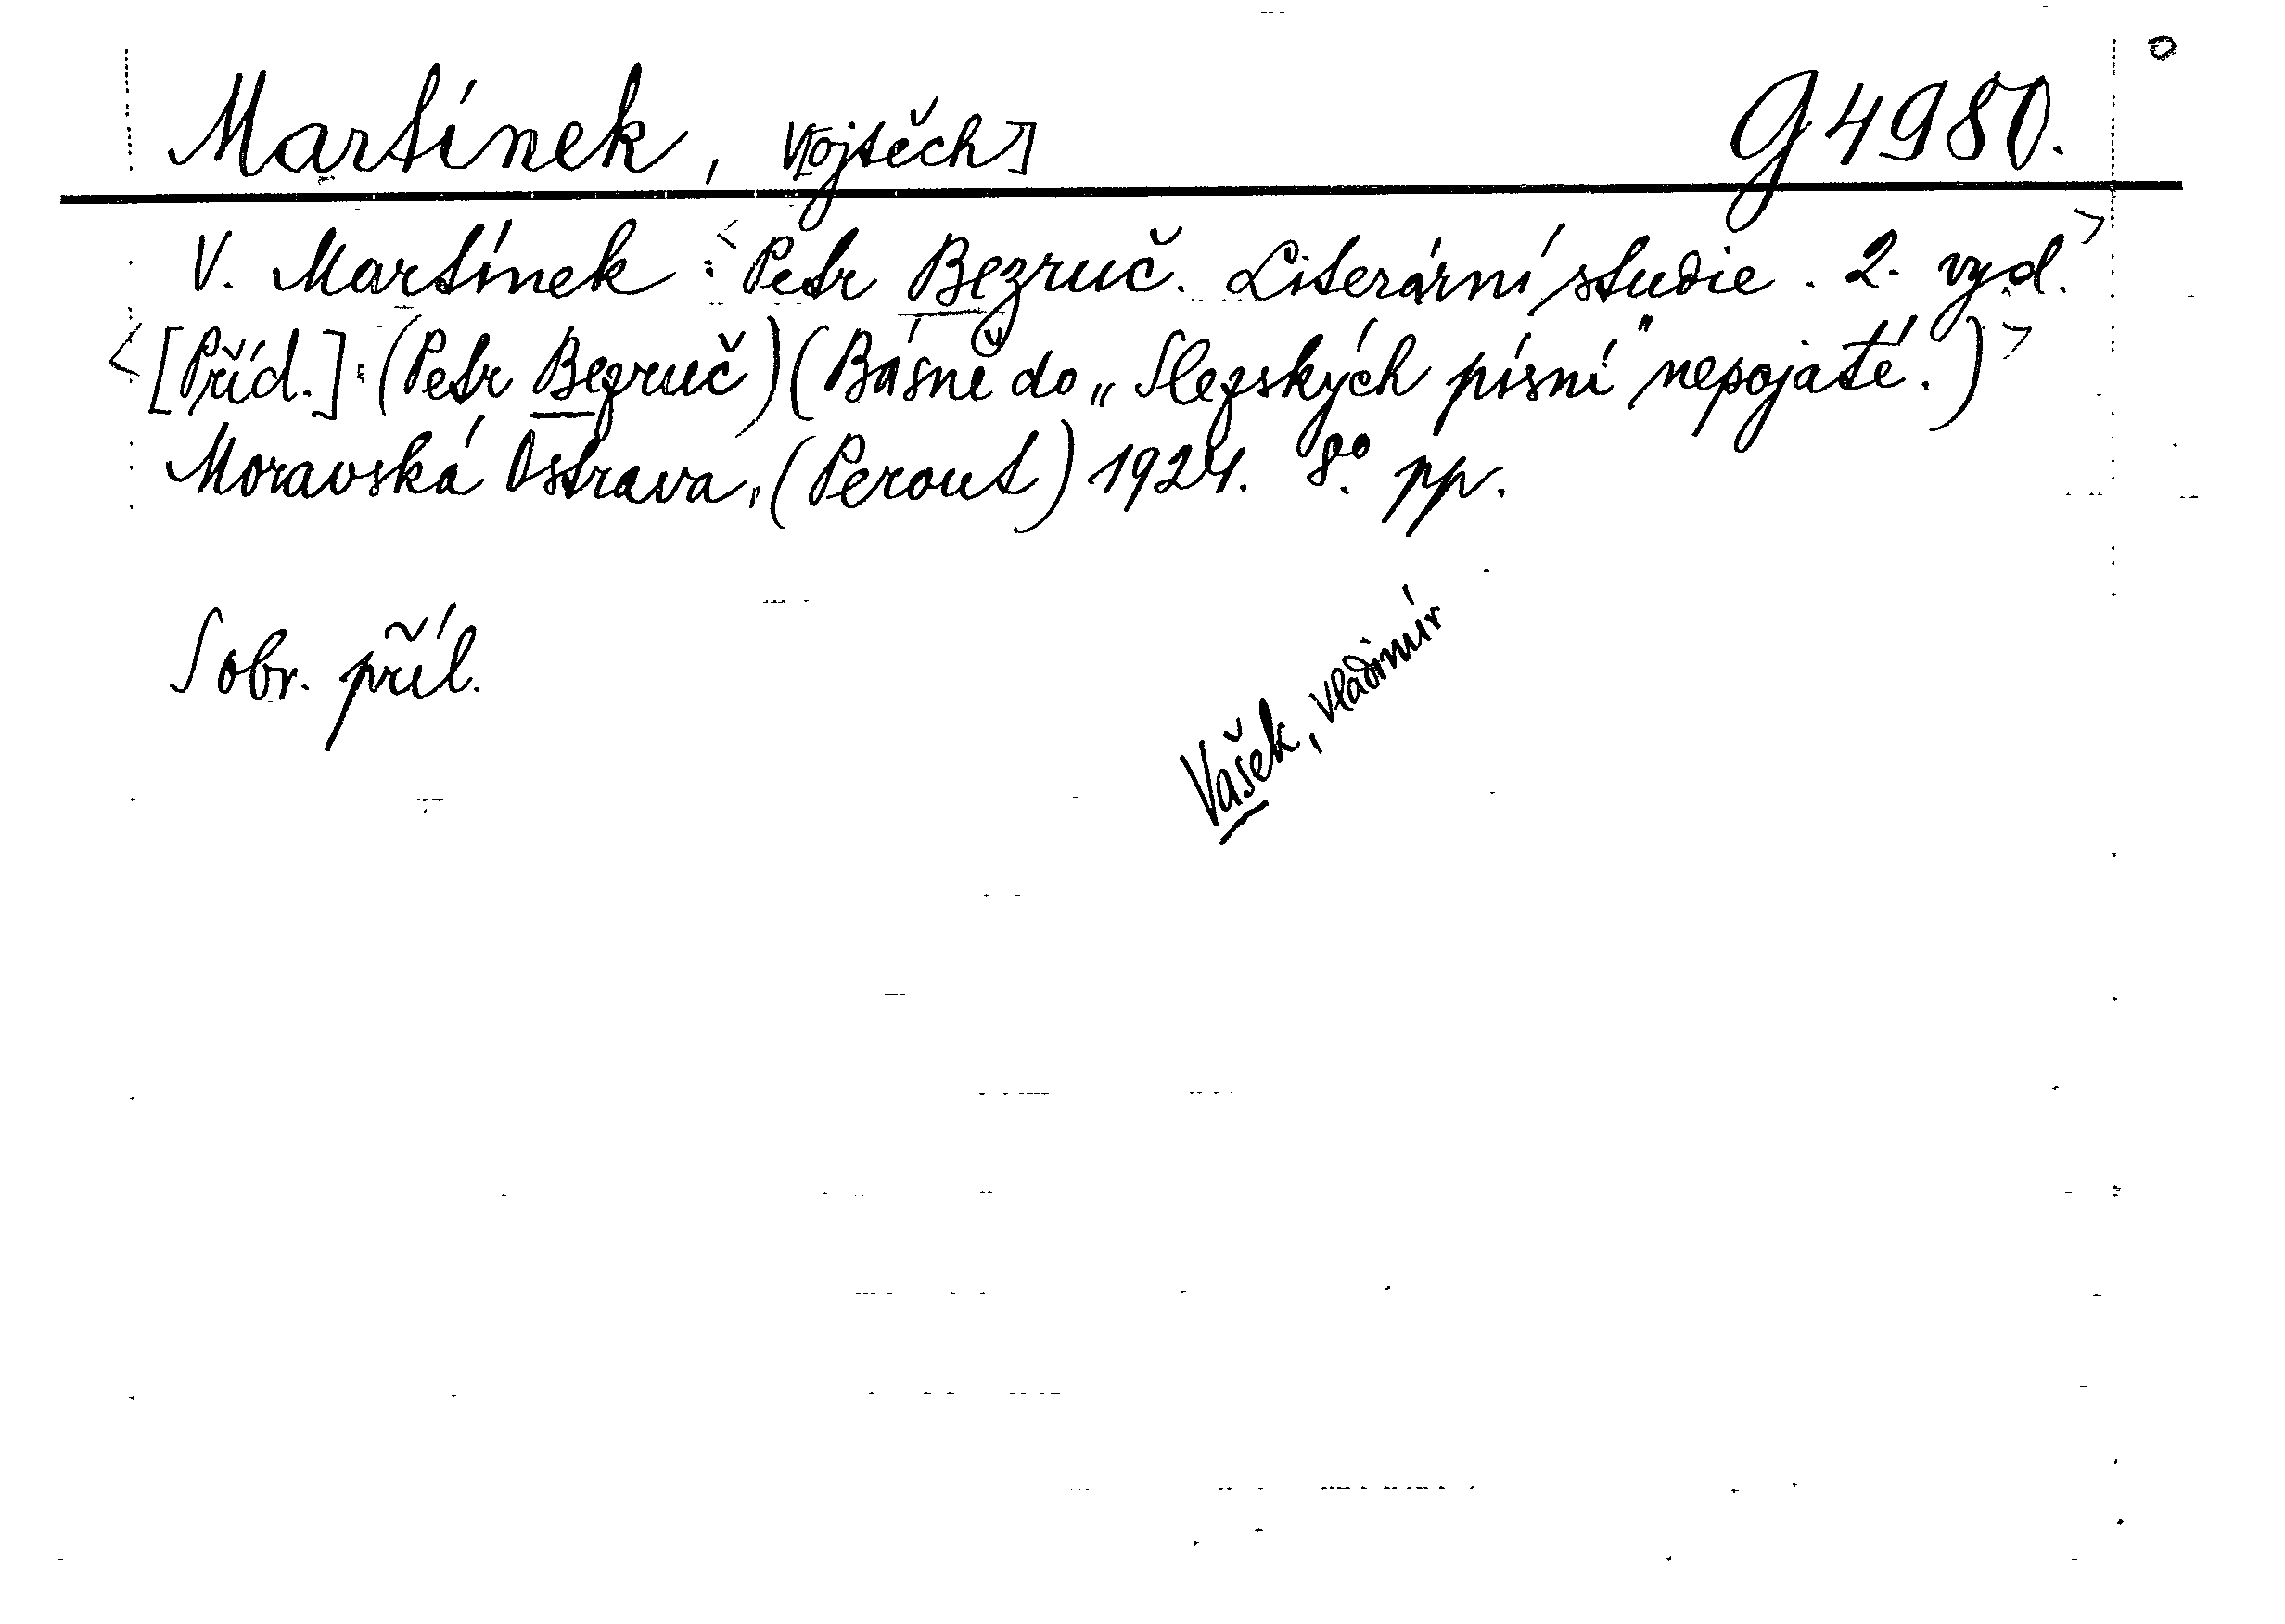 Martínek, V[ojtěch] G 4980.
V. Martínek: <Petr Bezruč. Literární studie. 2. vyd.>
<[Příd.]: (Petr Bezruč) (Básně do „Slezských písní" nepojaté.)>
Moravská Ostrava, (Perout) 1924. 8° pp.
S obr. příl.
Vašek, Vladimír